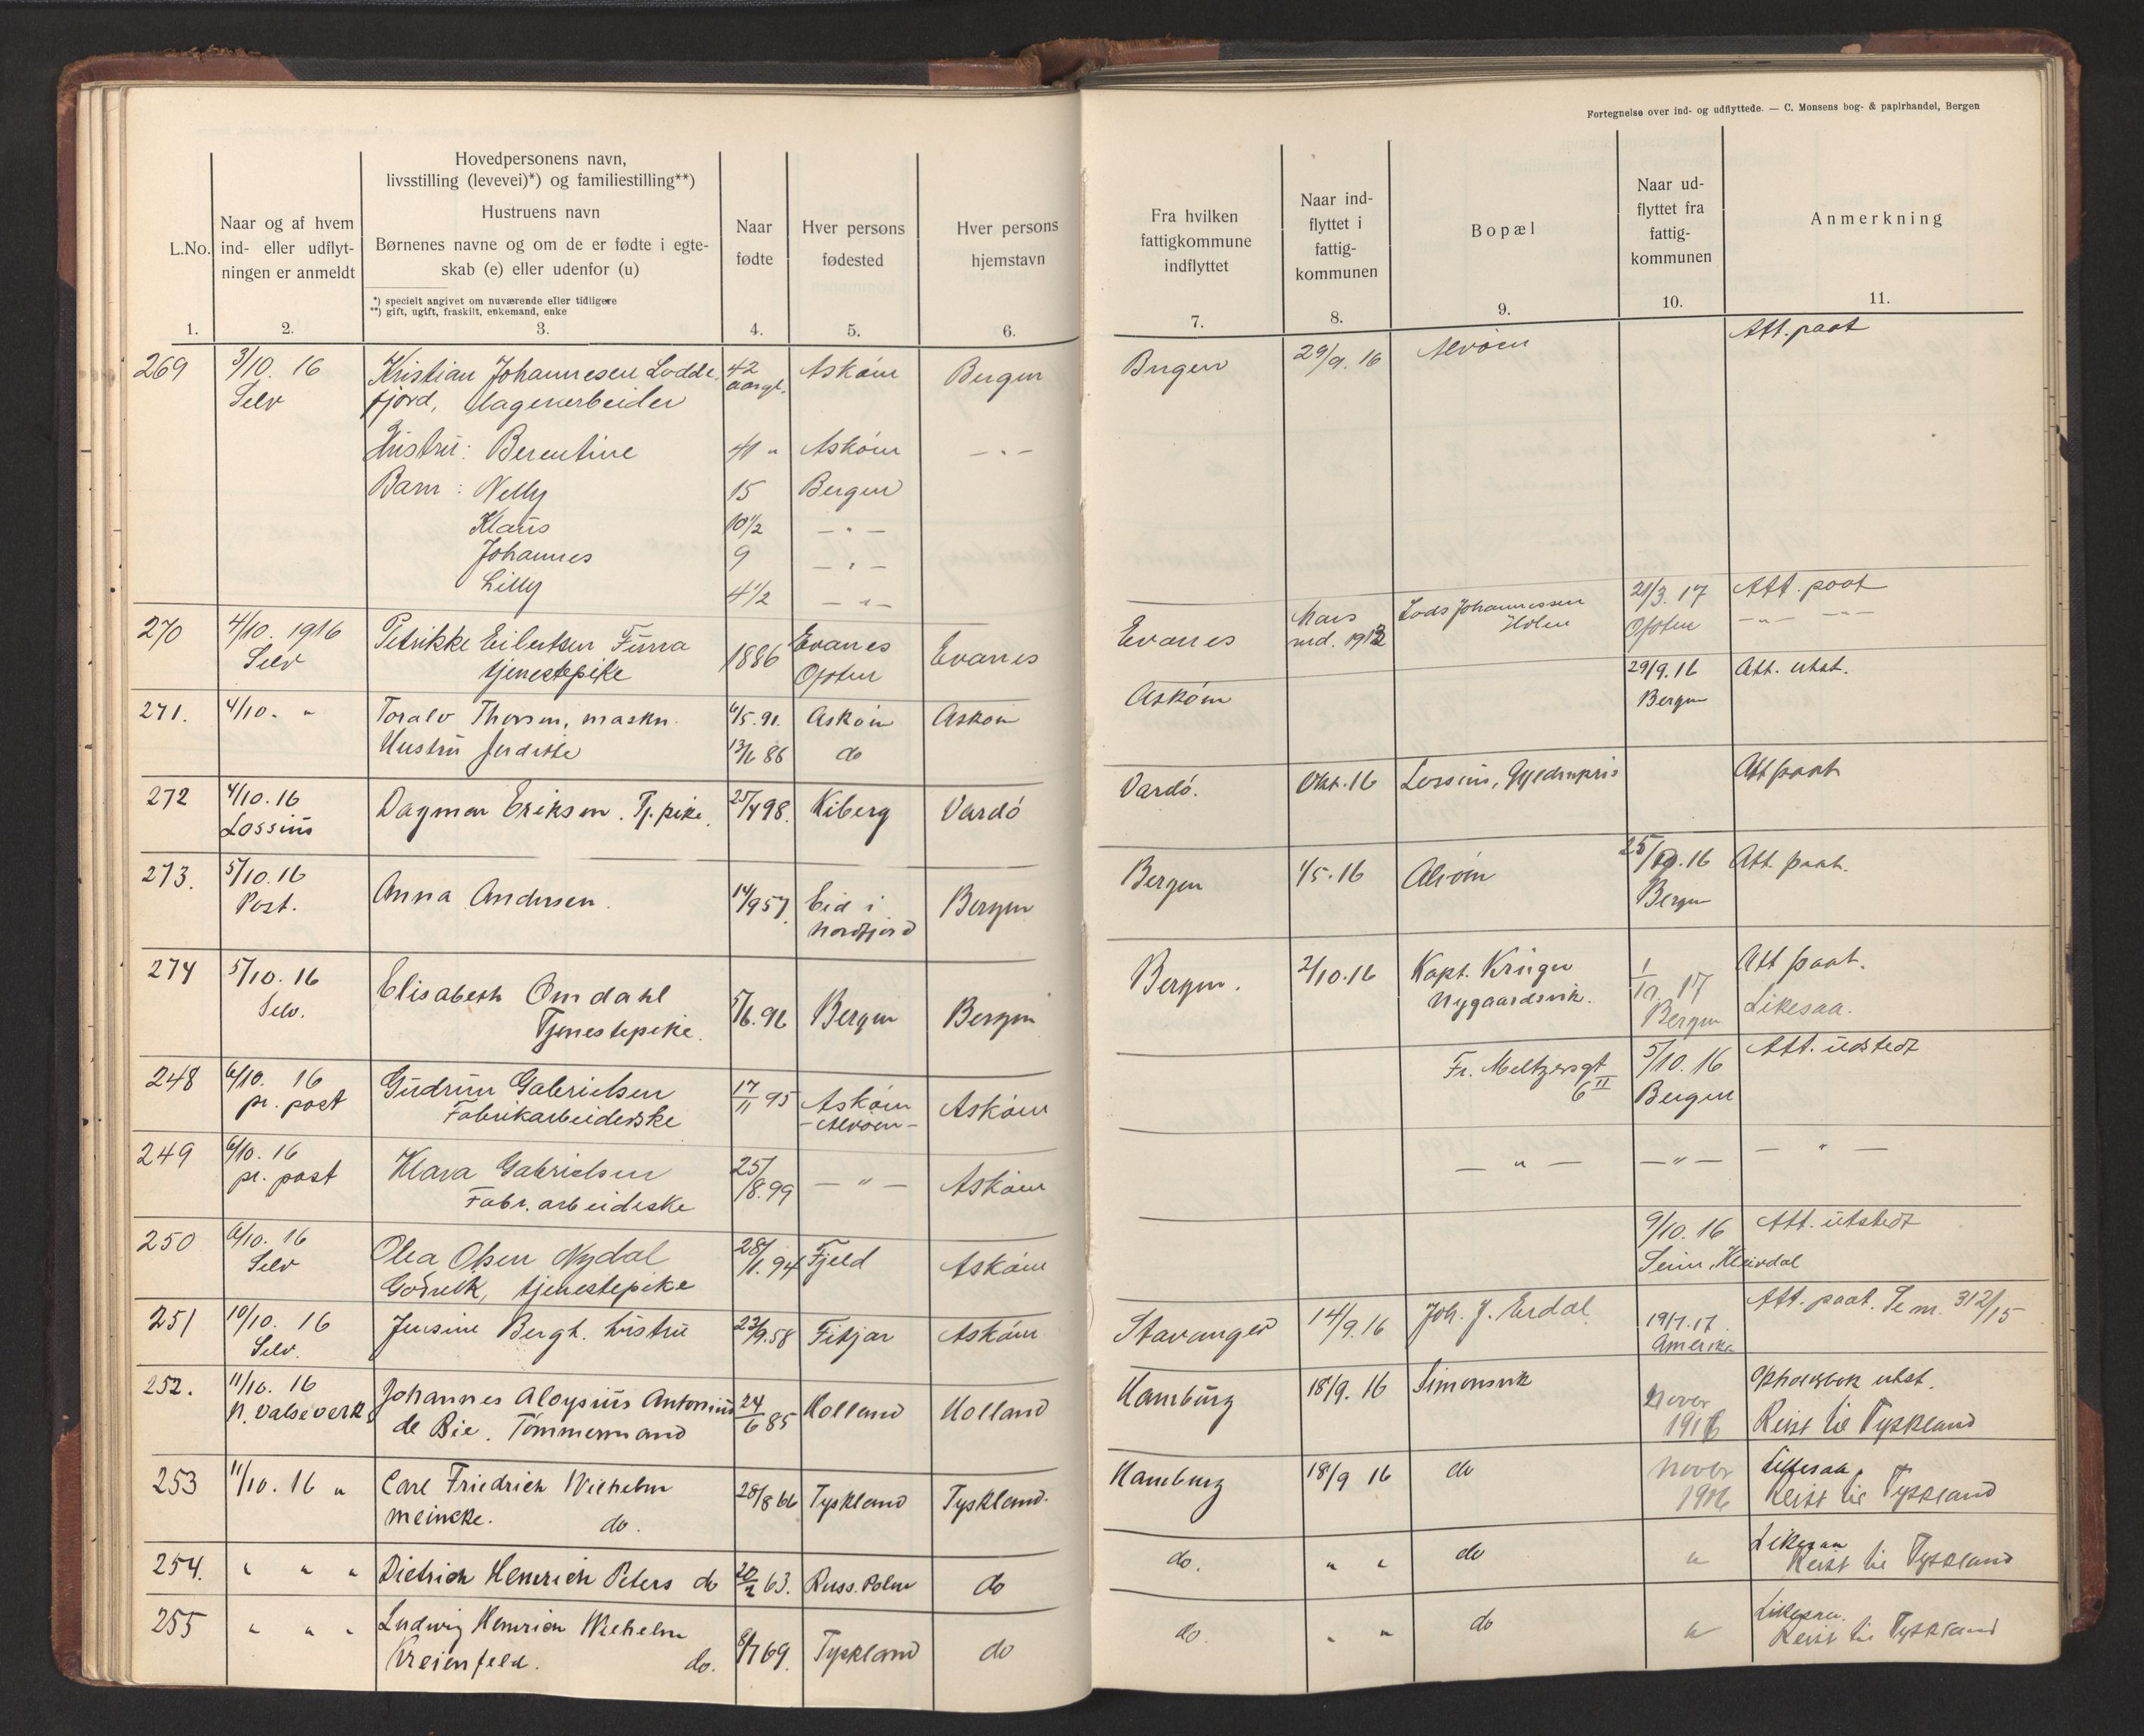 Fortegnelse over ind- og udflyttede. — C. Monsens bog- & papirhandel, Bergen
L.No.
1.
Naar og af hvem
ind- eller udflyt-
ningen er anmeldt
2.
Hovedpersonens navn,
livsstilling (levevei)*) og familiestilling**)
Hustruens navn
Børnenes navne og om de er fødte i egte-
skab (e) eller udenfor (u)
*) specielt angivet om nuværende eller tidligere
**) gift, ugift, fraskilt, enkemand, enke
3.
Naar
fødte
4.
Hver persons
fødested
5.
Hver persons
hjemstavn
6.
Fra hvilken
fattigkommune
indflyttet
7.
Naar ind-
flyttet i
fattig-
kommunen
8.
Bopæl
9.
Naar ud-
flyttet fra
fattig-
kommunen
10.
Anmerkning
11.
269 3/10. 16 Kristian Johannesen Lodde- 42 Askøin Bergen Bergen 29/9. 16 Alvøen Att. paat
Selv fjord, lagerarbeider aargl.
Hustru: Berentine 41 " Askøin — " —
Barn: Nelly 15 Bergen
Klaus 10 1/2 — " —
Johannes 9 — " —
Lilly 4 1/2 — " —
270 4/10. 1916 Petrikke Eilertsen 1886 Evanes Evanes Evanes Mars Lods Johannessen 21/3. 17 Att. paat
Selv tjenestepike Ofoten md. 1912 Holen Ofoten — " —
271. 4/10. " Toralv Thorsen, maskn. 6/5. 91. Askøin Askøin Askøin 29/9. 16 Att. utst.
Hustru 13/6 86 do Bergen
272 4/10. 16 Dagmar Eriksen. Tj. pike. 25/4 98. Kiberg Vardø Vardø. Okt. 16 Lossius, Gyldenpris Att paat
Lossius
273. 5/10. 16 Anna Andersen. 14/9 57. Eid i Bergen Bergen 1/5. 16 Alvøen 25/10. 16 Att. paat.
Post. Nordfjord Bergen
274 5/10. 16 Elisabeth Omdahl 5/6. 96 Bergen Bergen Bergen. 2/10. 16 Kapt. Krüger 17 Att paat.
Selv. Tjenestepike. Nygaardsvik. Bergen Likesaa.
248 6/10. 16 Gudrun Gabrielsen 17/11 95 Askøin Askøin Fr. Meltzersgt 5/10. 16 Att. udstedt
pr. post Fabrikarbeiderske - Alvøen - 6 II Bergen
249 6/10. 16 Klara Gabrielsen 25/8. 99 — " — Askøin — " — — " — — " —
pr. post Fabr. arbeideske
250 6/10. 16 Olea Olsen Nydal 28/1. 94 Fjeld Askøin 9/10. 16 Att. utstedt
Selv Godvik, tjenestepike Seim,
251 10/10. 16 Jensine Bergh. hustru 23/9. 58 Fitjar Askøin Stavanger 14/9. 16 Joh. J. Erdal 19/7. 17. Att. paat. Se nr. 312/15
Selv. Amerika
252. 11/10. 16 Johannes Aloysius Antonius 24/6 85 Holland Holland Hamburg 18/9. 16 Simonsvik Novbr Opholdsbok utst.
N. Valseverk de Bie. Tømmermand 1916 Reist til Tyskland
253 11/10. 16 " Carl Friedrich Wilhelm 28/8 66 Tyskland Tyskland. Hamburg 18/9 16 do Novbr Likesaa.
Meincke. do. 1916 Reist til Tyskland
254. " " " Dietrich Heinrich Peters do 20/2 63. Russ. Polen do do. " " do " Likesaa
Reist til Tyskland
255 " " " Ludwig Heinrich Wilhelm 8/7 69. Tyskland do do. " " do " Likesaa.
Kreienfeld. do. Reist til Tyskland